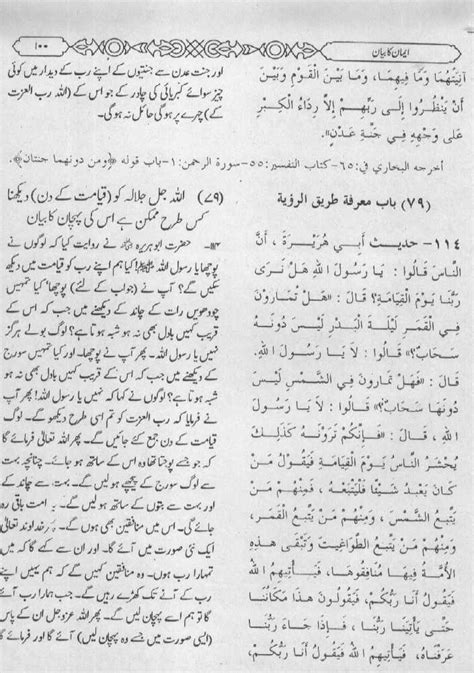 ایمان کا بیان
۱۰۰
آنِيَتُهُمَا وَمَا فِيهِمَا، وَمَا بَيْنَ الْقَوْمِ وَبَيْنَ
أَنْ يَنْظُرُوا إِلَى رَبِّهِمْ إِلَّا رِدَاءُ الْكِبْرِ
عَلَى وَجْهِهِ فِي جَنَّةِ عَدْنٍ».
اور جنت عدن سے جنتیوں کے اپنے رب کے دیدار میں کوئی
چیز سوائے کبریائی کی چادر کے جو اس کے (اللہ رب العزت
کے) چہرے پر ہوگی حائل نہ ہوگی۔
أخرجه البخاري في: ٦٥- كتاب التفسير: ٥٥- سورة الرحمن: ١- باب قوله ﴿ومن دونهما جنتان﴾.
(٧٩) باب معرفة طريق الرؤية
١١٤- حديث أَبِي هُرَيْرَةَ، أَنَّ
النَّاسَ قَالُوا: يَا رَسُولَ اللهِ هَلْ نَرَى
رَبَّنَا يَوْمَ الْقِيَامَةِ؟ قَالَ: «هَلْ تُمَارُونَ
فِي الْقَمَرِ لَيْلَةَ الْبَدْرِ لَيْسَ دُونَهُ
سَحَابٌ؟» قَالُوا: لَا يَا رَسُولَ اللهِ.
قَالَ: «فَهَلْ تُمَارُونَ فِي الشَّمْسِ لَيْسَ
دُونَهَا سَحَابٌ؟» قَالُوا: لَا يَا رَسُولَ
اللهِ، قَالَ: «فَإِنَّكُمْ تَرَوْنَهُ كَذَلِكَ
يُحْشَرُ النَّاسُ يَوْمَ الْقِيَامَةِ فَيَقُولُ مَنْ
كَانَ يَعْبُدُ شَيْئًا فَلْيَتَّبِعْهُ، فَمِنْهُمْ مَنْ
يَتَّبِعُ الشَّمْسَ، وَمِنْهُمْ مَنْ يَتَّبِعُ الْقَمَرَ،
وَمِنْهُمْ مَنْ يَتَّبِعُ الطَّوَاغِيتَ وَتَبْقَى هَذِهِ
الْأُمَّةُ فِيهَا مُنَافِقُوهَا، فَيَأْتِيهِمُ اللهُ
فَيَقُولُ أَنَا رَبُّكُمْ، فَيَقُولُونَ هَذَا مَكَانُنَا
حَتَّى يَأْتِيَنَا رَبُّنَا، فَإِذَا جَاءَ رَبُّنَا
عَرَفْنَاهُ، فَيَأْتِيهِمُ اللهُ فَيَقُولُ أَنَا رَبُّكُمْ،
(۷۹) اللہ جل جلالہ کو (قیامت کے دن) دیکھنا
کس طرح ممکن ہے اس کی پہچان کا بیان
حضرت ابو ہریرہ نے روایت کیا کہ لوگوں نے
پوچھا یا رسول اللہ ﷺ! کیا ہم اپنے رب کو قیامت میں دیکھ
سکیں گے؟ آپ نے (جواب کے لئے) پوچھا کیا تمہیں
چودھویں رات کے چاند کے دیکھنے میں جب کہ اس کے
قریب کہیں بادل بھی نہ ہو شبہ ہوتا ہے؟ لوگ بولے ہرگز
نہیں یا رسول اللہ۔ پھر آپ نے پوچھا۔ اور کیا تمہیں سورج
کے دیکھنے میں جب کہ اس کے قریب کہیں بادل بھی نہ ہو
شبہ ہوتا ہے؟ لوگوں نے کہا کہ نہیں یا رسول اللہ! پھر آپ
نے فرمایا کہ رب العزت کو تم اسی طرح دیکھو گے۔ لوگ
قیامت کے دن جمع کئے جائیں گے۔ پھر اللہ تعالی فرمائے گا
کہ جو جسے پوجتا تھا وہ اس کے ساتھ ہو جائے۔ چنانچہ بہت
سے لوگ سورج کے پیچھے ہو لیں گے۔ بہت سے چاند کے
اور بہت سے بتوں کے ساتھ ہو لیں گے۔ یہ امت باقی رہ
جائے گی۔ اس میں منافقین بھی ہوں گے۔ پھر خداوند تعالی
ایک نئی صورت میں آئے گا۔ اور ان سے کہے گا کہ میں
تمہارا رب ہوں۔ وہ منافقین کہیں گے کہ ہم یہیں اپنے
رب کے آنے تک کھڑے رہیں گے۔ جب ہمارا رب آئے
گا تو ہم اسے پہچان لیں گے۔ پھر اللہ عزوجل ان کے پاس
(ایسی صورت میں جسے وہ پہچان لیں) آئے گا اور فرمائے گا